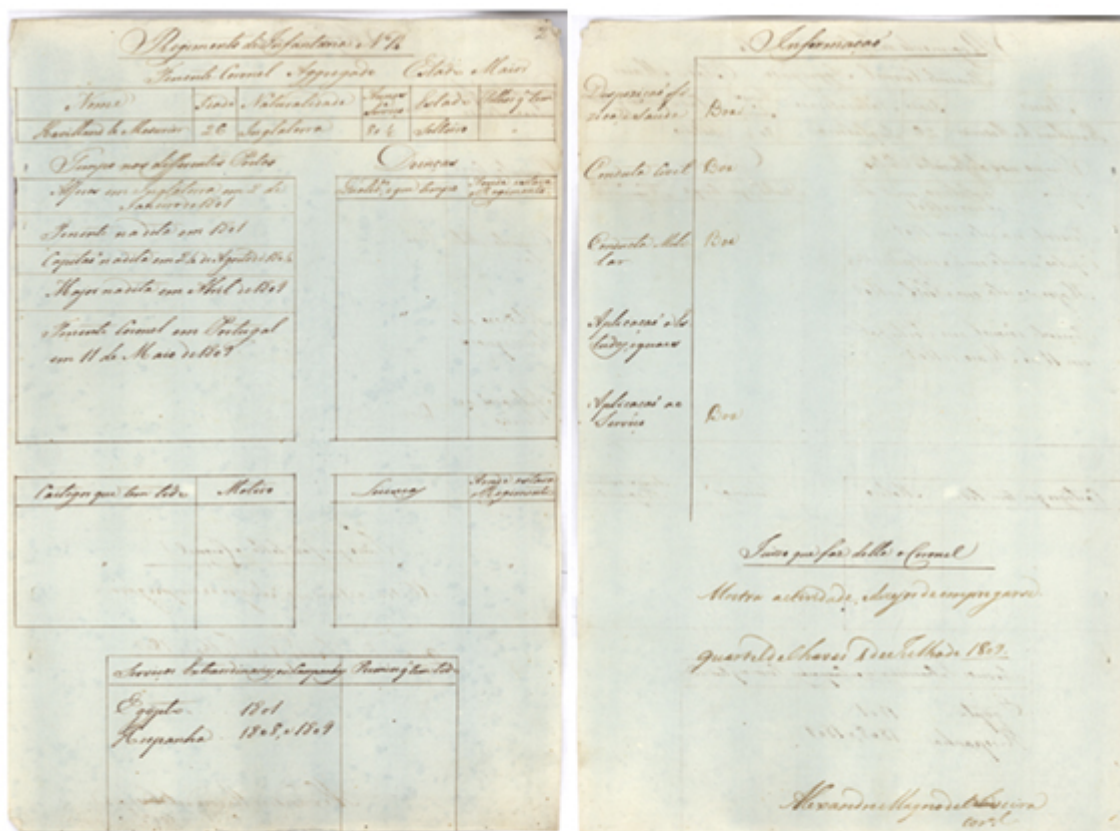 2
Regimento de Infantaria Nº 12
Tenente Coronel Aggregado Estado Maior
Nome Idade Naturalidade Tempo de Serviço Estado Filhos q. tem
Havilland le Mesurier 26 Inglaterra Solteiro
Tempo nos differentes Postos
Alferes em Inglaterra em 2 de
Janeiro de 1801
Tenente na dita em 1801
Capitaõ na dita em 24 de Agosto de 1804
Major na dita em Abril de 1809
Tenente Coronel em Portugal
em 11 de Maio de 1809
Doenças
e que tempo Aonde estava o Regimento
Castigos que tem tido Motivo
Licenças Aonde estava o Regimento
Serviços Extraordinarios, e Campanhas
Egypto 1801
Hespanha 1808, e 1809
Informacaõ
Despoziçaõ fi-
zica, e Saude Boa
Conduta Civil Boa
Conducta Mili-
tar Boa
Aplicacaõ a Es-
tudos, e quaes
Aplicacaõ ao
Serviço Boa
Juizo que faz delle o Coronel
Mostra actividade, e dezejos de empregarse
Quartel de Chaves 1 de Julho de 1809.
Alexandre Magno de Oliveira
Cor.el